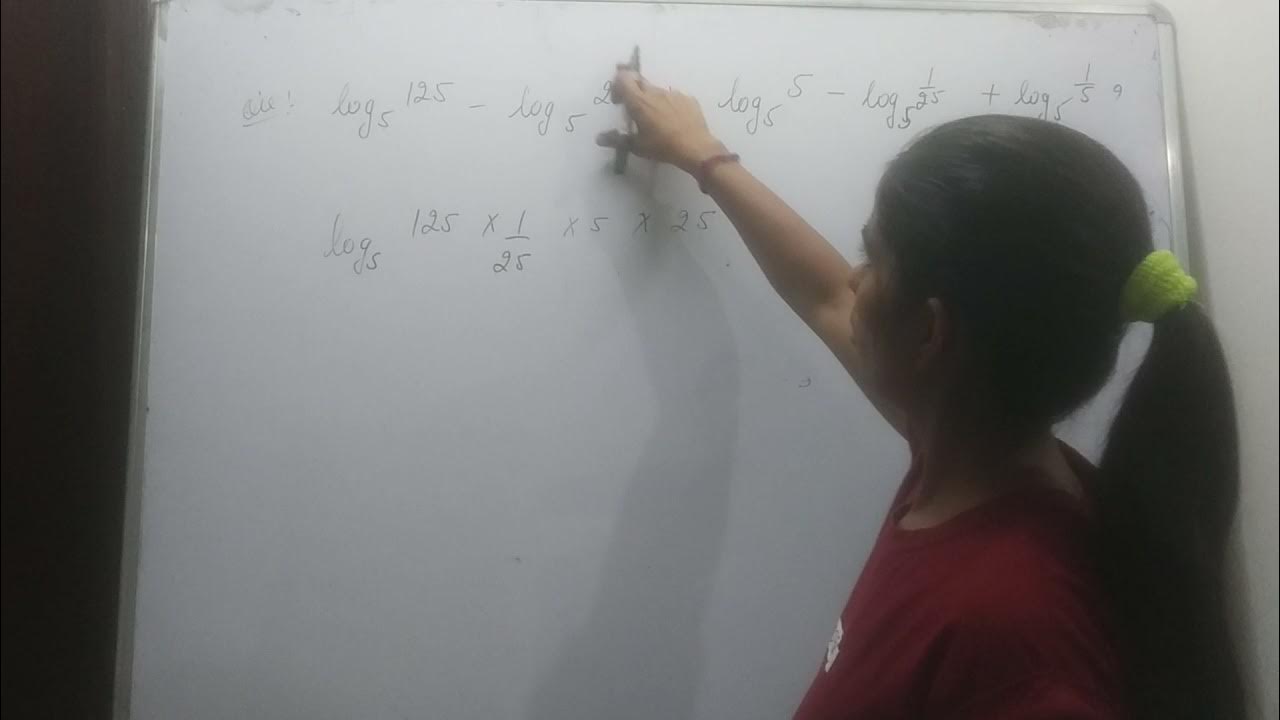 log₅ 125 - log₅ 2 log₅ 5 - log₅ 1/25 + log₅ 1/5 ?
log₅ 125 × 1/25 × 5 × 25